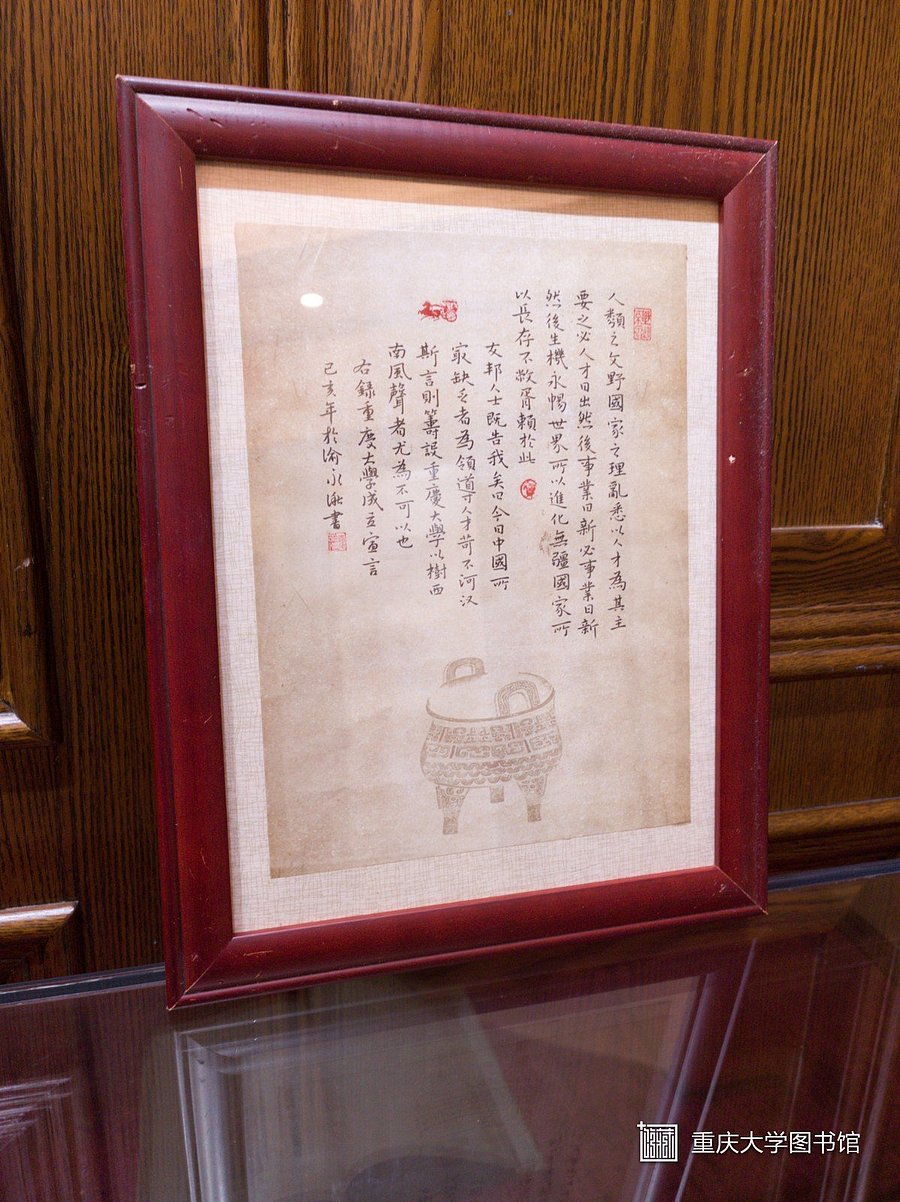 人類之文野國家之理亂悉以人才為其主
要之必人才日出然後事業日新必事業日新
然後生機永暢世界所以進化無疆國家所
以長存不敝胥賴於此
友邦人士既告我矣曰今日中國所
最缺乏者為領導人才苟不河汉
斯言則籌設重慶大學以樹西
南風聲者尤為不可以也
右錄重慶大學成立宣言
己亥年於渝永
書
重庆大学图书馆